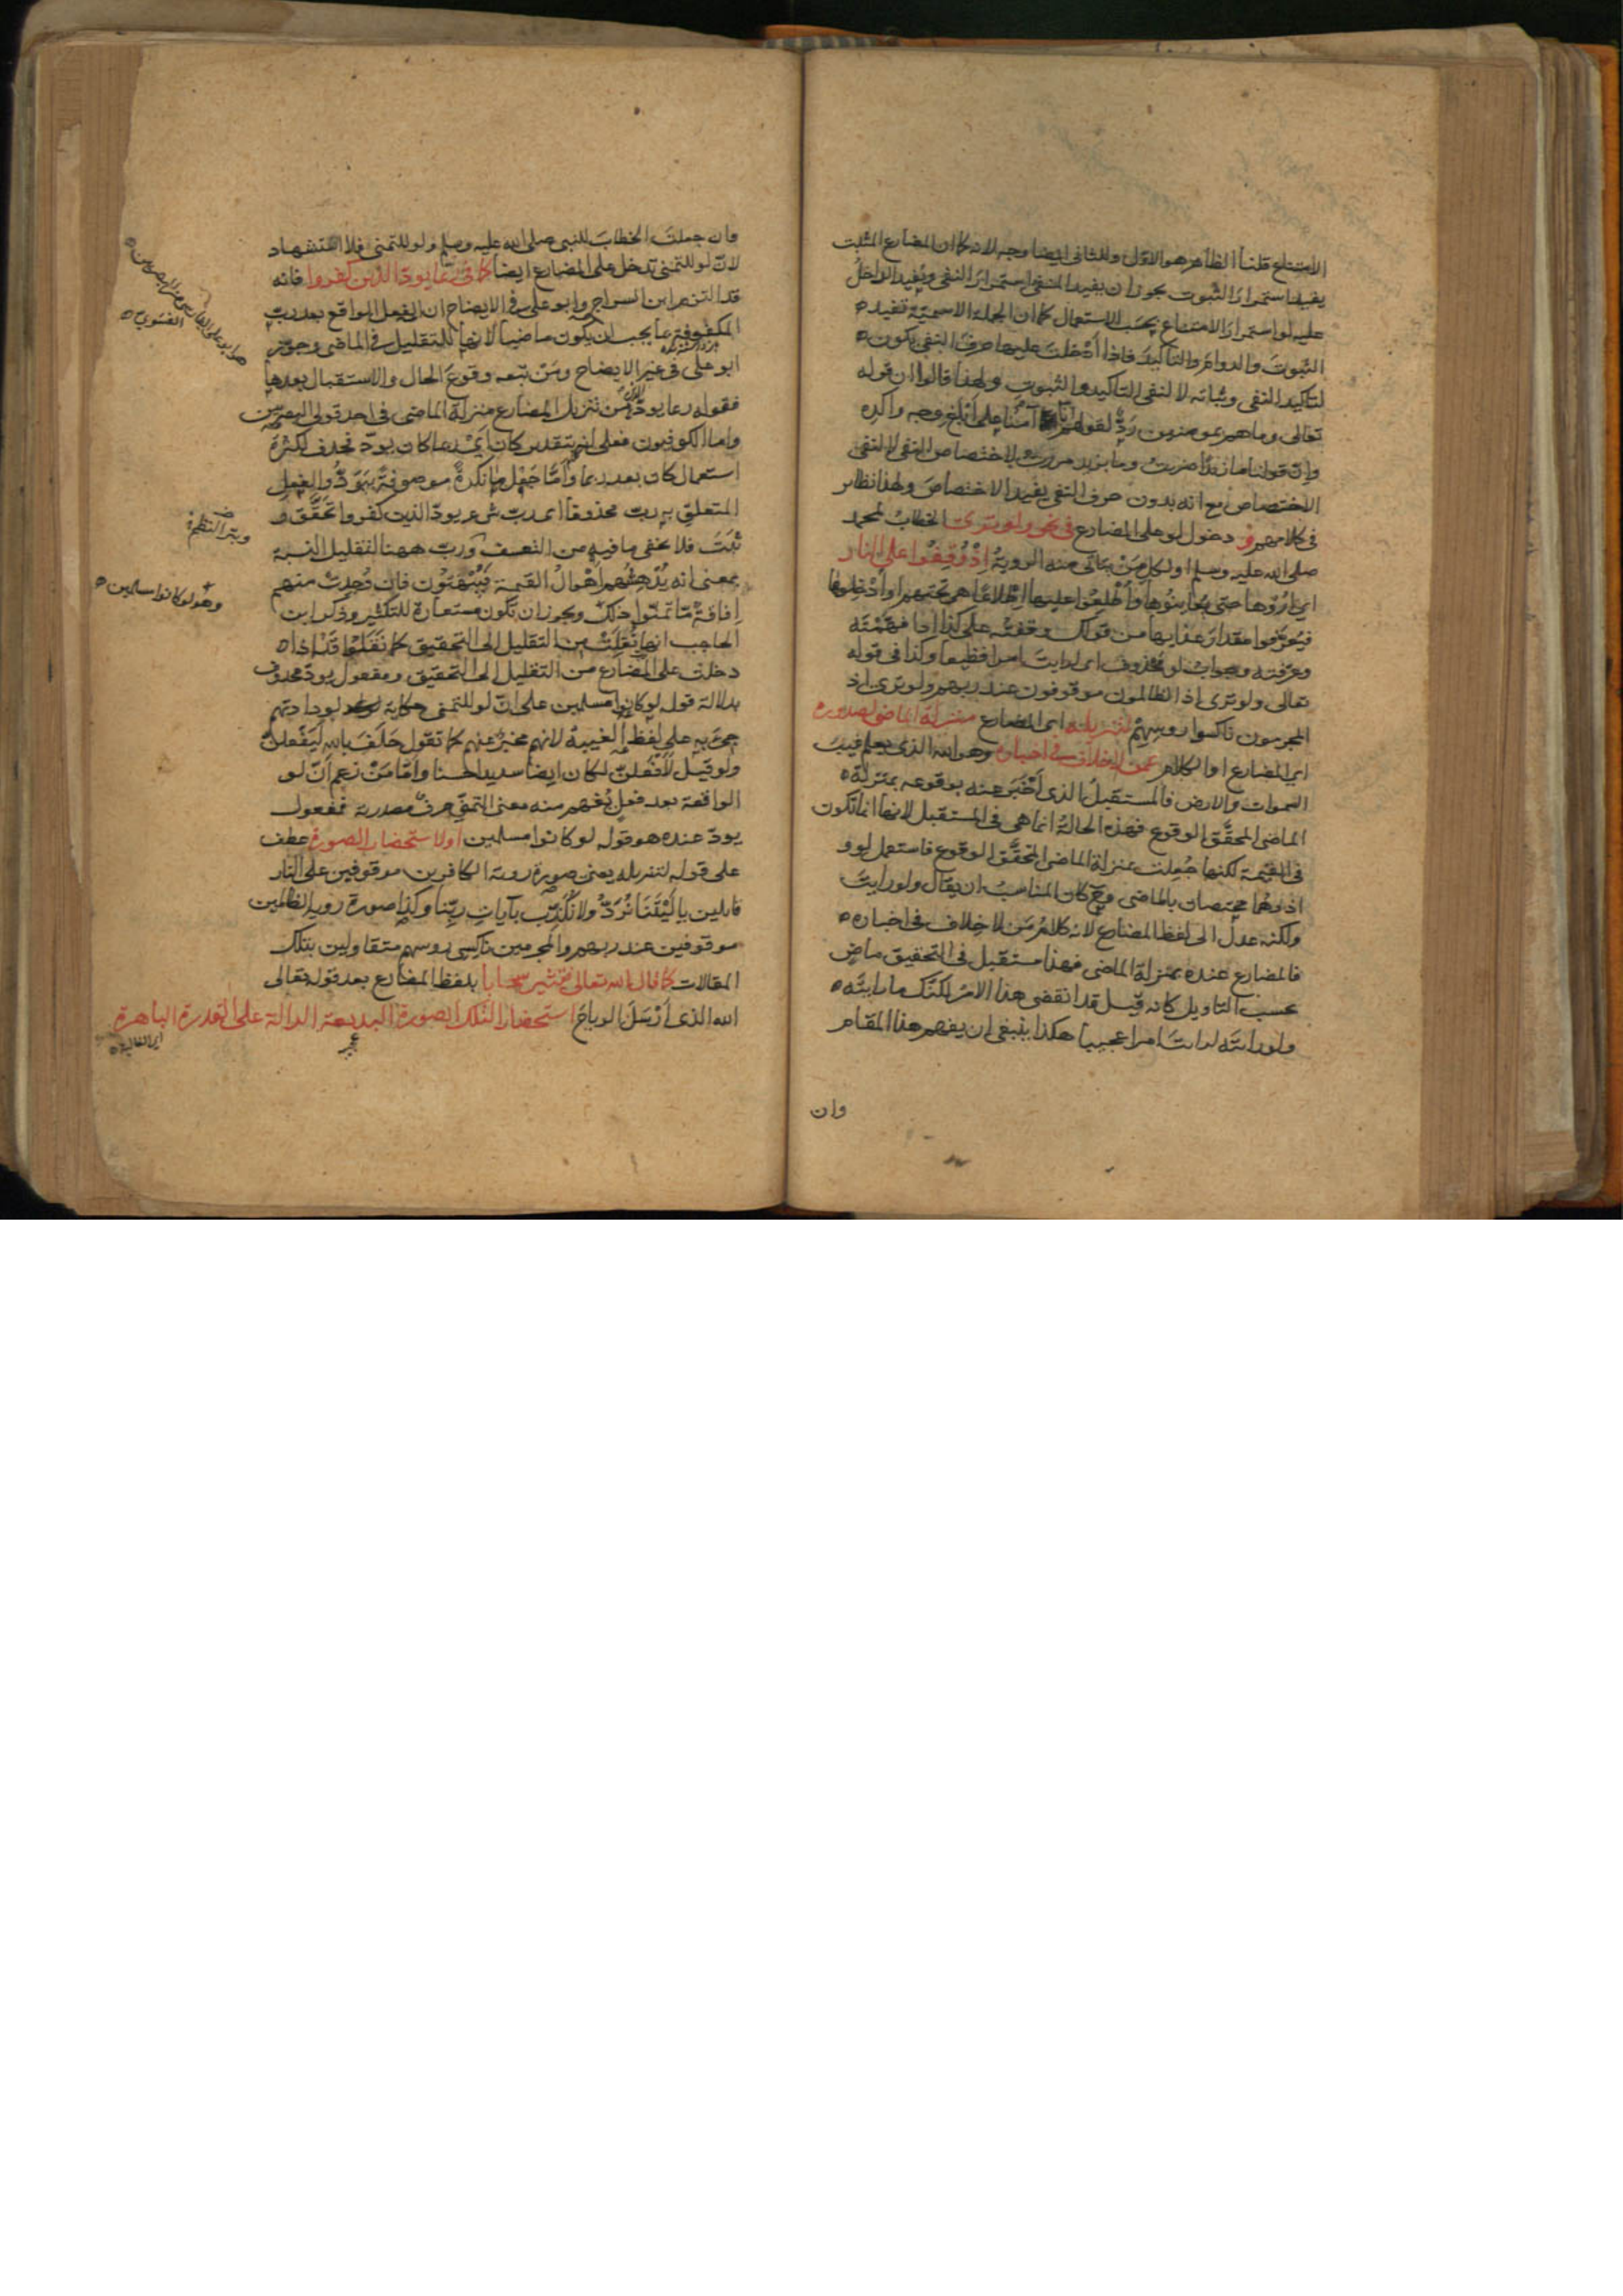 الامتناع قلنا الظاهر هو الاول وللثانى ايضا وجه لانه كما ان المضارع المثبت
يفيد استمرار الثبوت يجوز ان يفيد المنفى استمرار النفى ويفيد الداخل
عليه لو استمرار الامتناع بحسب الاستعمال كما ان الجملة الاسمية تفيد
الثبوت والدوام والتاكيد فاذا أدخلت عليها حرف النفى يكون
لتاكيد النفى وثباته لا لنفى التاكيد والثبوت ولهذا قالوا ان قوله
تعالى وما هم بمومنين ردٌّ لقولهم انا آمنا على أبلغ وجه واكده
وان قولنا ما زيدا ضربت وما بزيد مررت لاختصاص النفى لا لنفى
الاختصاص مع انه بدون حرف النفى يفيد الاختصاص ولهذا نظاير
فى كلامهم و دخول لو على المضارع فى نحو ولو ترى الخطاب لمحمد
صلى الله عليه وسلم او لكل من يتاتى منه الروية اذ وقفوا على النار
اى اروها حتى يعاينوها وأطلعوا عليها اطلاعا هى تحتهم او أدخلوها
فيعرفوا مقدار عذابها من قولك وقفته على كذا اذا فهمته
وعرفته وجواب لو محذوف اى لرايت امرا فظيعا وكذا فى قوله
تعالى ولو ترى اذ الظالمون موقوفون عند ربهم ولو ترى اذ
المجرمون ناكسوا روسهم لتنزيله اى المضارع منزلة الماضى لصدوره
اى المضارع او الكلام عمن لا خلاف فى اخباره وهو الله الذى يعلم غيب
السموات والارض فالمستقبل الذى أخبر عنه بوقوعه بمنزلة
الماضى المحقق الوقوع فهذه الحالة انما هى فى المستقبل لانها انما تكون
فى القيمة لكنها جعلت بمنزلة الماضى المحقق الوقوع فاستعمل لو و
اذ وهما مختصان بالماضى وح كان المناسب ان يقال ولو رايت
ولكنه عدل الى لفظ المضارع لانه كلام من لا خلاف فى اخباره
فالمضارع عنده بمنزلة الماضى فهذا مستقبل فى التحقيق ماض
بحسب التاويل كانه قيل قد انقضى هذا الامر لكنك ما رايته
ولو رايته لرايت امرا عجيبا هكذا ينبغى ان يفهم هذا المقام
وان
وان جعلت الخطاب للنبى صلى الله عليه وسلم ولو للتمنى فلا استشهاد
لان لو للتمنى تدخل على المضارع ايضا كما فى ربما يود الذين كفروا فانه
قد التزم ابن السراج وابو على فى الايضاح ان الفعل الواقع بعد رب
المكفوفة بما يجب ان يكون ماضيا لانها للتقليل فى الماضى وجوز
ابو على فى غير الايضاح ومن تبعه وقوع الحال والاستقبال بعدها
فقوله ربما يود من تنزيل المضارع منزلة الماضى فى احد قولى البصريين
واما الكوفيون فعلى انه بتقدير كان اى ربما كان يود فحذف لكثرة
استعمال كان بعد ربما واما جعل ما نكرة موصوفة بيود والفعل
المتعلق به رب محذوفا اى رب شىء يود الذين كفروا تحقق و
ثبت فلا يخفى ما فيه من التعسف ورب ههنا لتقليل النسبة
بمعنى انه يدهشهم أهوال القيمة فيبهتون فان وجدت منهم
افاقة ما تمنوا ذلك ويجوز ان تكون مستعارة للتكثير وذكر ابن
الحاجب انها نقلت من التقليل الى التحقيق كما نقلوا قد اذا
دخلت على المضارع من التقليل الى التحقيق ومفعول يود محذوف
بدلالة قوله لو كانوا مسلمين على ان لو للتمنى حكاية لودادتهم
جىء به على لفظ الغيبة لانهم مخبر عنهم كما تقول حلف بالله ليفعلن
ولو قيل لأفعلن لكان ايضا سديدا حسنا واما من زعم أن لو
الواقعة بعد فعل يفهم منه معنى التمنى حرف مصدرية فمفعول
يود عنده هو قوله لو كانوا مسلمين او لاستحضار الصورة عطف
على قوله لتنزيله يعنى صورة روية الكافرين موقوفين على النار
قايلين يا ليتنا نرد ولا نكذب بآيات ربنا وكذا صورة روية الظالمين
موقوفين عند ربهم والمجرمين ناكسى روسهم متقاولين بتلك
المقالات كما قال الله تعالى فتثير سحابا بلفظ المضارع بعد قوله تعالى
الله الذى أرسل الرياح استحضارا لتلك الصورة البديعة الدالة على القدرة الباهرة
هو ابو على الفارسى من البصريين
الفسوى
وهو لو كانوا مسلمين
اى الغالبة